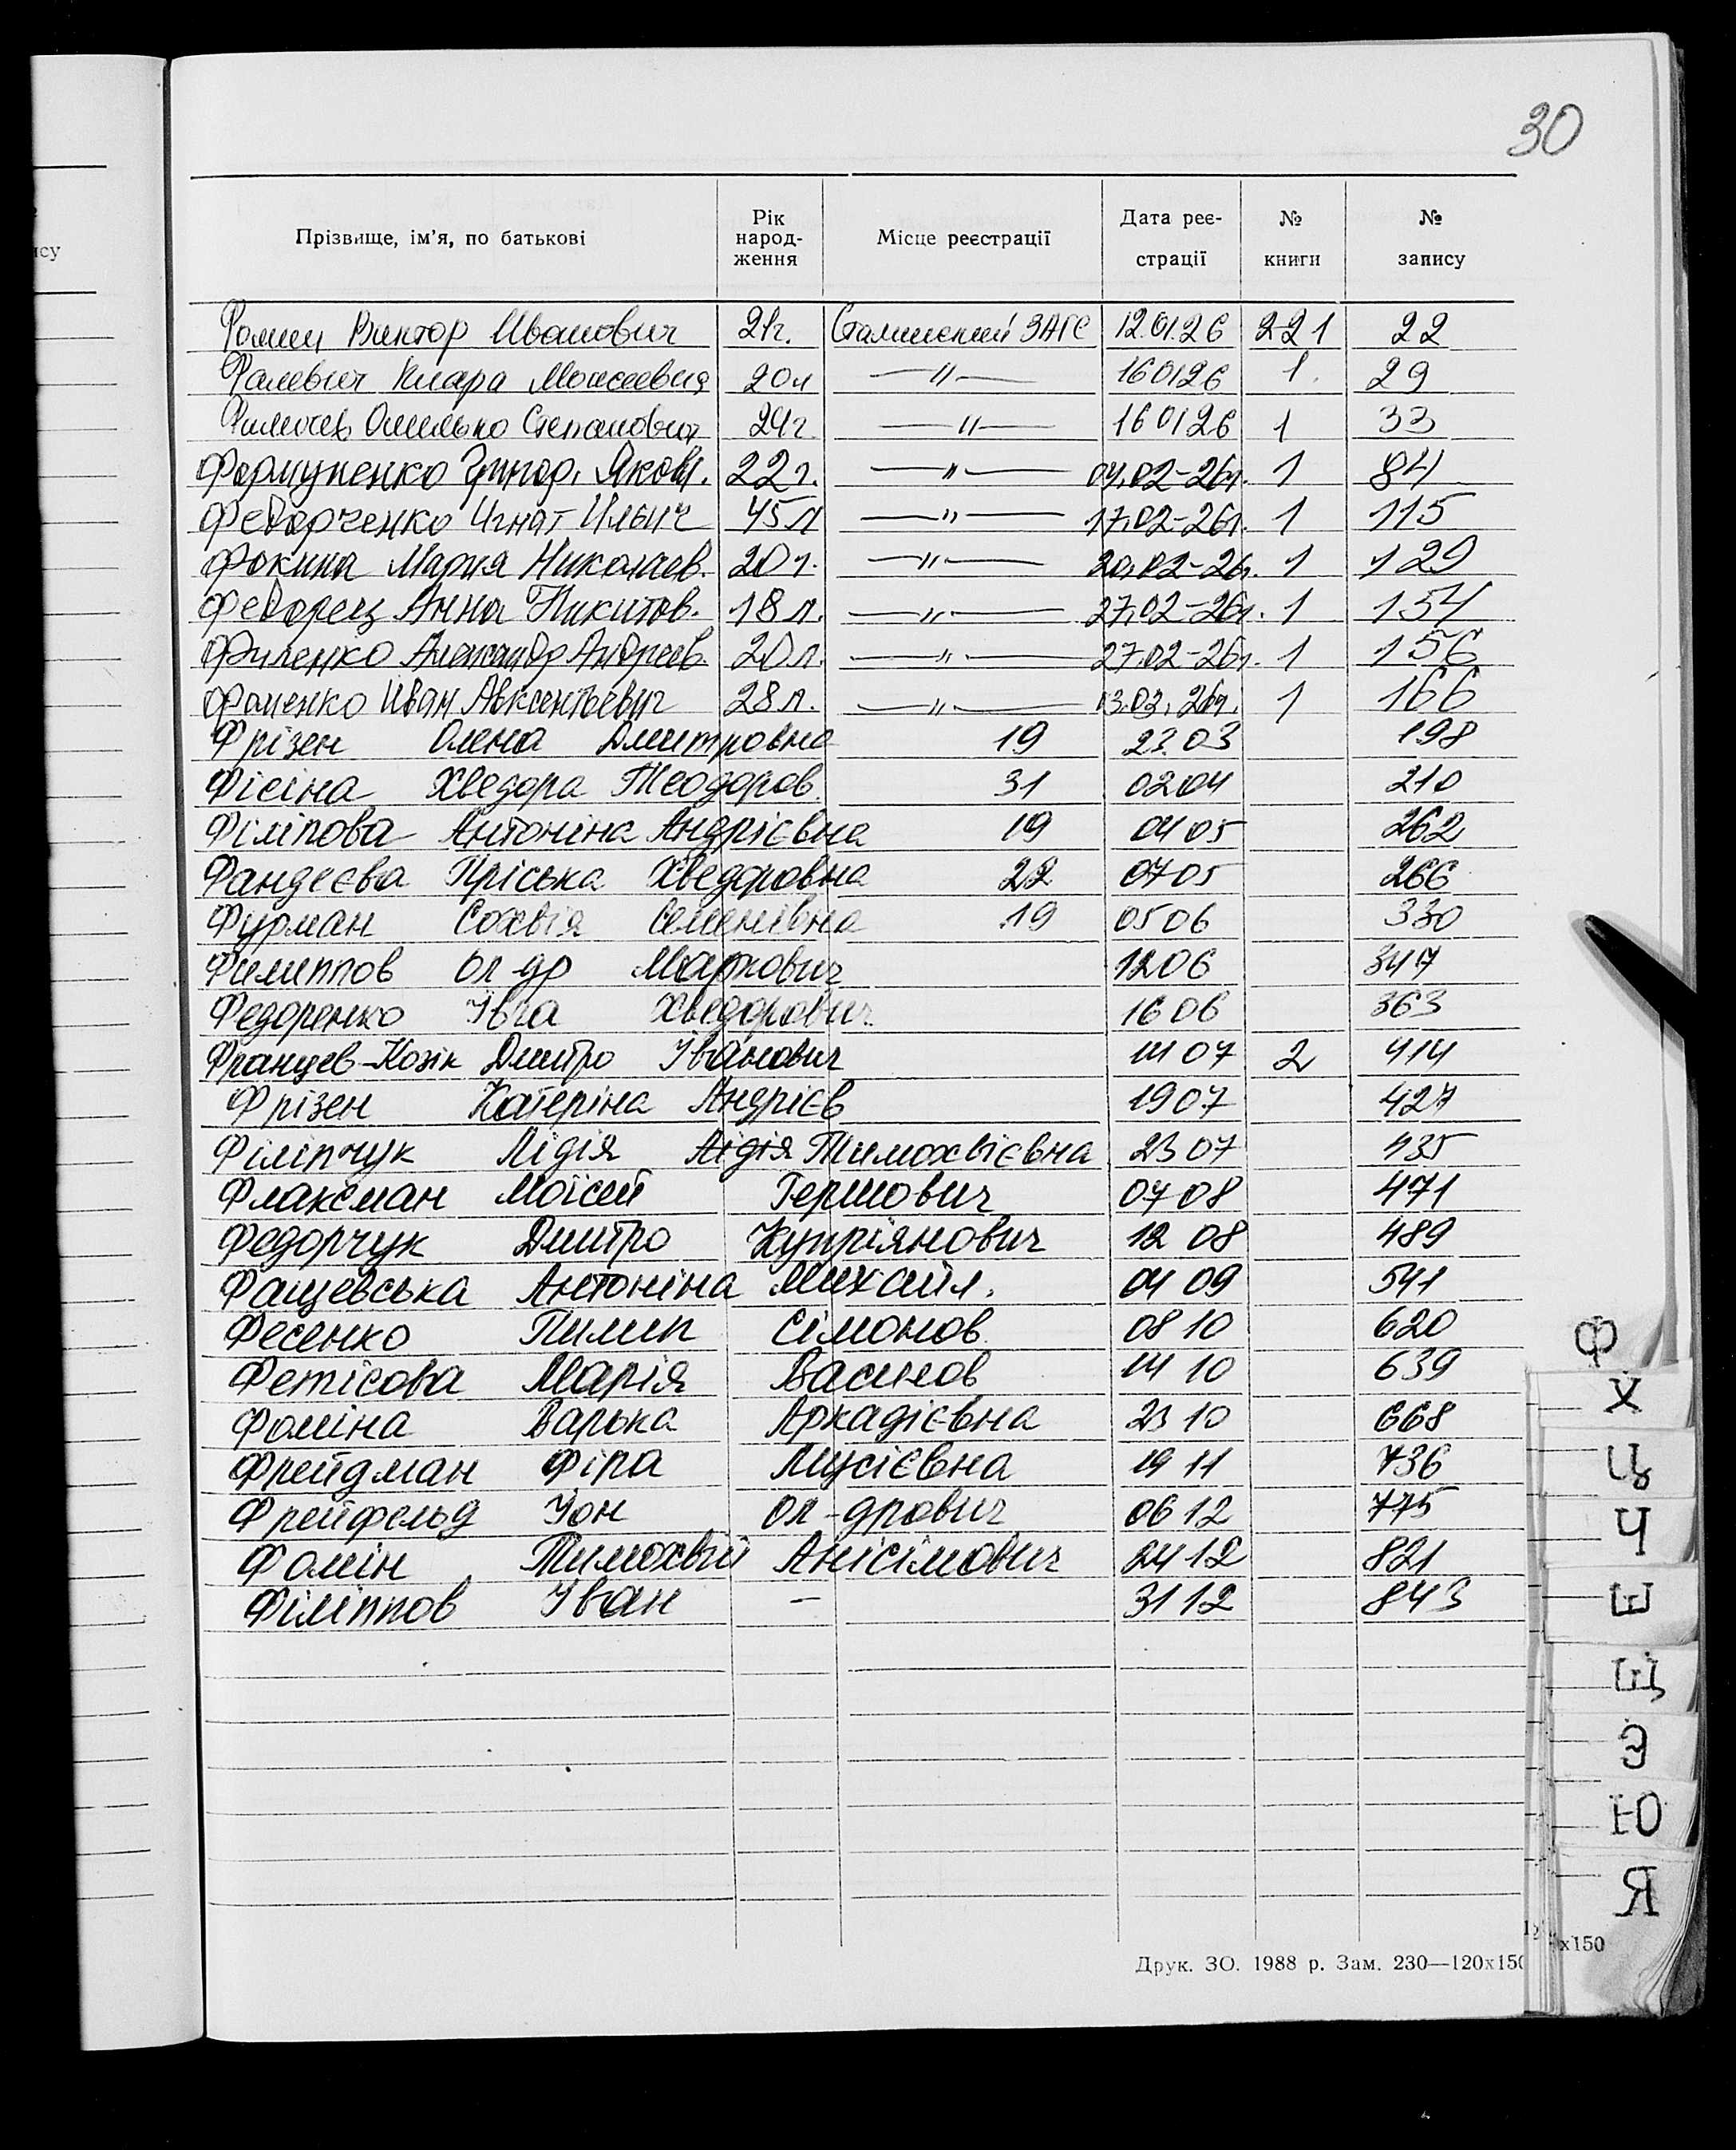 30
Прізвище, ім'я, по батькові Рік народ-ження Місце реєстрації Дата реє-страції № книги № запису
Фомин Виктор Иванович 21г. Сталинский ЗАГС 12.01.26 221 22
Фалевич Клара Моисеевна 20л —〃— 160126 1. 29
Омелько Степанович 24г. —〃— 160126 1 33
Григор. Яковл. 22г. —〃— 04.02-26г. 1 84
Федорченко Игнат Ильич 45л —〃— 17.02-26г. 1 115
Фокина Мария Николаев. 20л. —〃— 20.02-26г. 1 129
Федорец Анна Никитов. 18л. —〃— 27.02-26г. 1 154
Филенко Александр Андреев. 20л. —〃— 27.02-26г. 1 156
Фоменко Иван Авксентьевич 28л. —〃— 03.03.26г. 1 166
Фрізен Олена Дмитровна 19 23.03 198
Фісіна Хведора Теодоров. 31 0204 210
Філіпова Антоніна Андрієвна 19 0405 262
Фандеєва Пріська Хведоровна 22 0705 266
Фурман Сохвія Семенівна 19 0506 330
Филиппов Ол-др Маркович 1206 347
Федоренко Ївга Хведорович 1606 363
Францев-Козік Дмитро Іванович 1407 2 414
Фрізен Катеріна Андрієв 1907 427
Філіпчук Лідія Лідія Тимохвієвна 2307 435
Флаксман Мойсей Гершович 0708 471
Федорчук Дмитро Купріянович 12 08 489
Фащевська Антоніна Михайл. 04 09 541
Фесенко Пилип Сімонов. 08 10 620
Фетісова Марія Васильов 14 10 639
Фоміна Варька Аркадієвна 23 10 668
Фрейдман Фіра Мусієвна 19 11 736
Фрейфельд Йон Ол-дрович 06 12 775
Фомін Тимохвій Анісімович 24 12 821
Філіппов Іван - 31 12 843
Ф
Х
Ц
Ч
Ш
Щ
Э
Ю
Я
Друк. ЗО. 1988 р. Зам. 230—120х150
х150